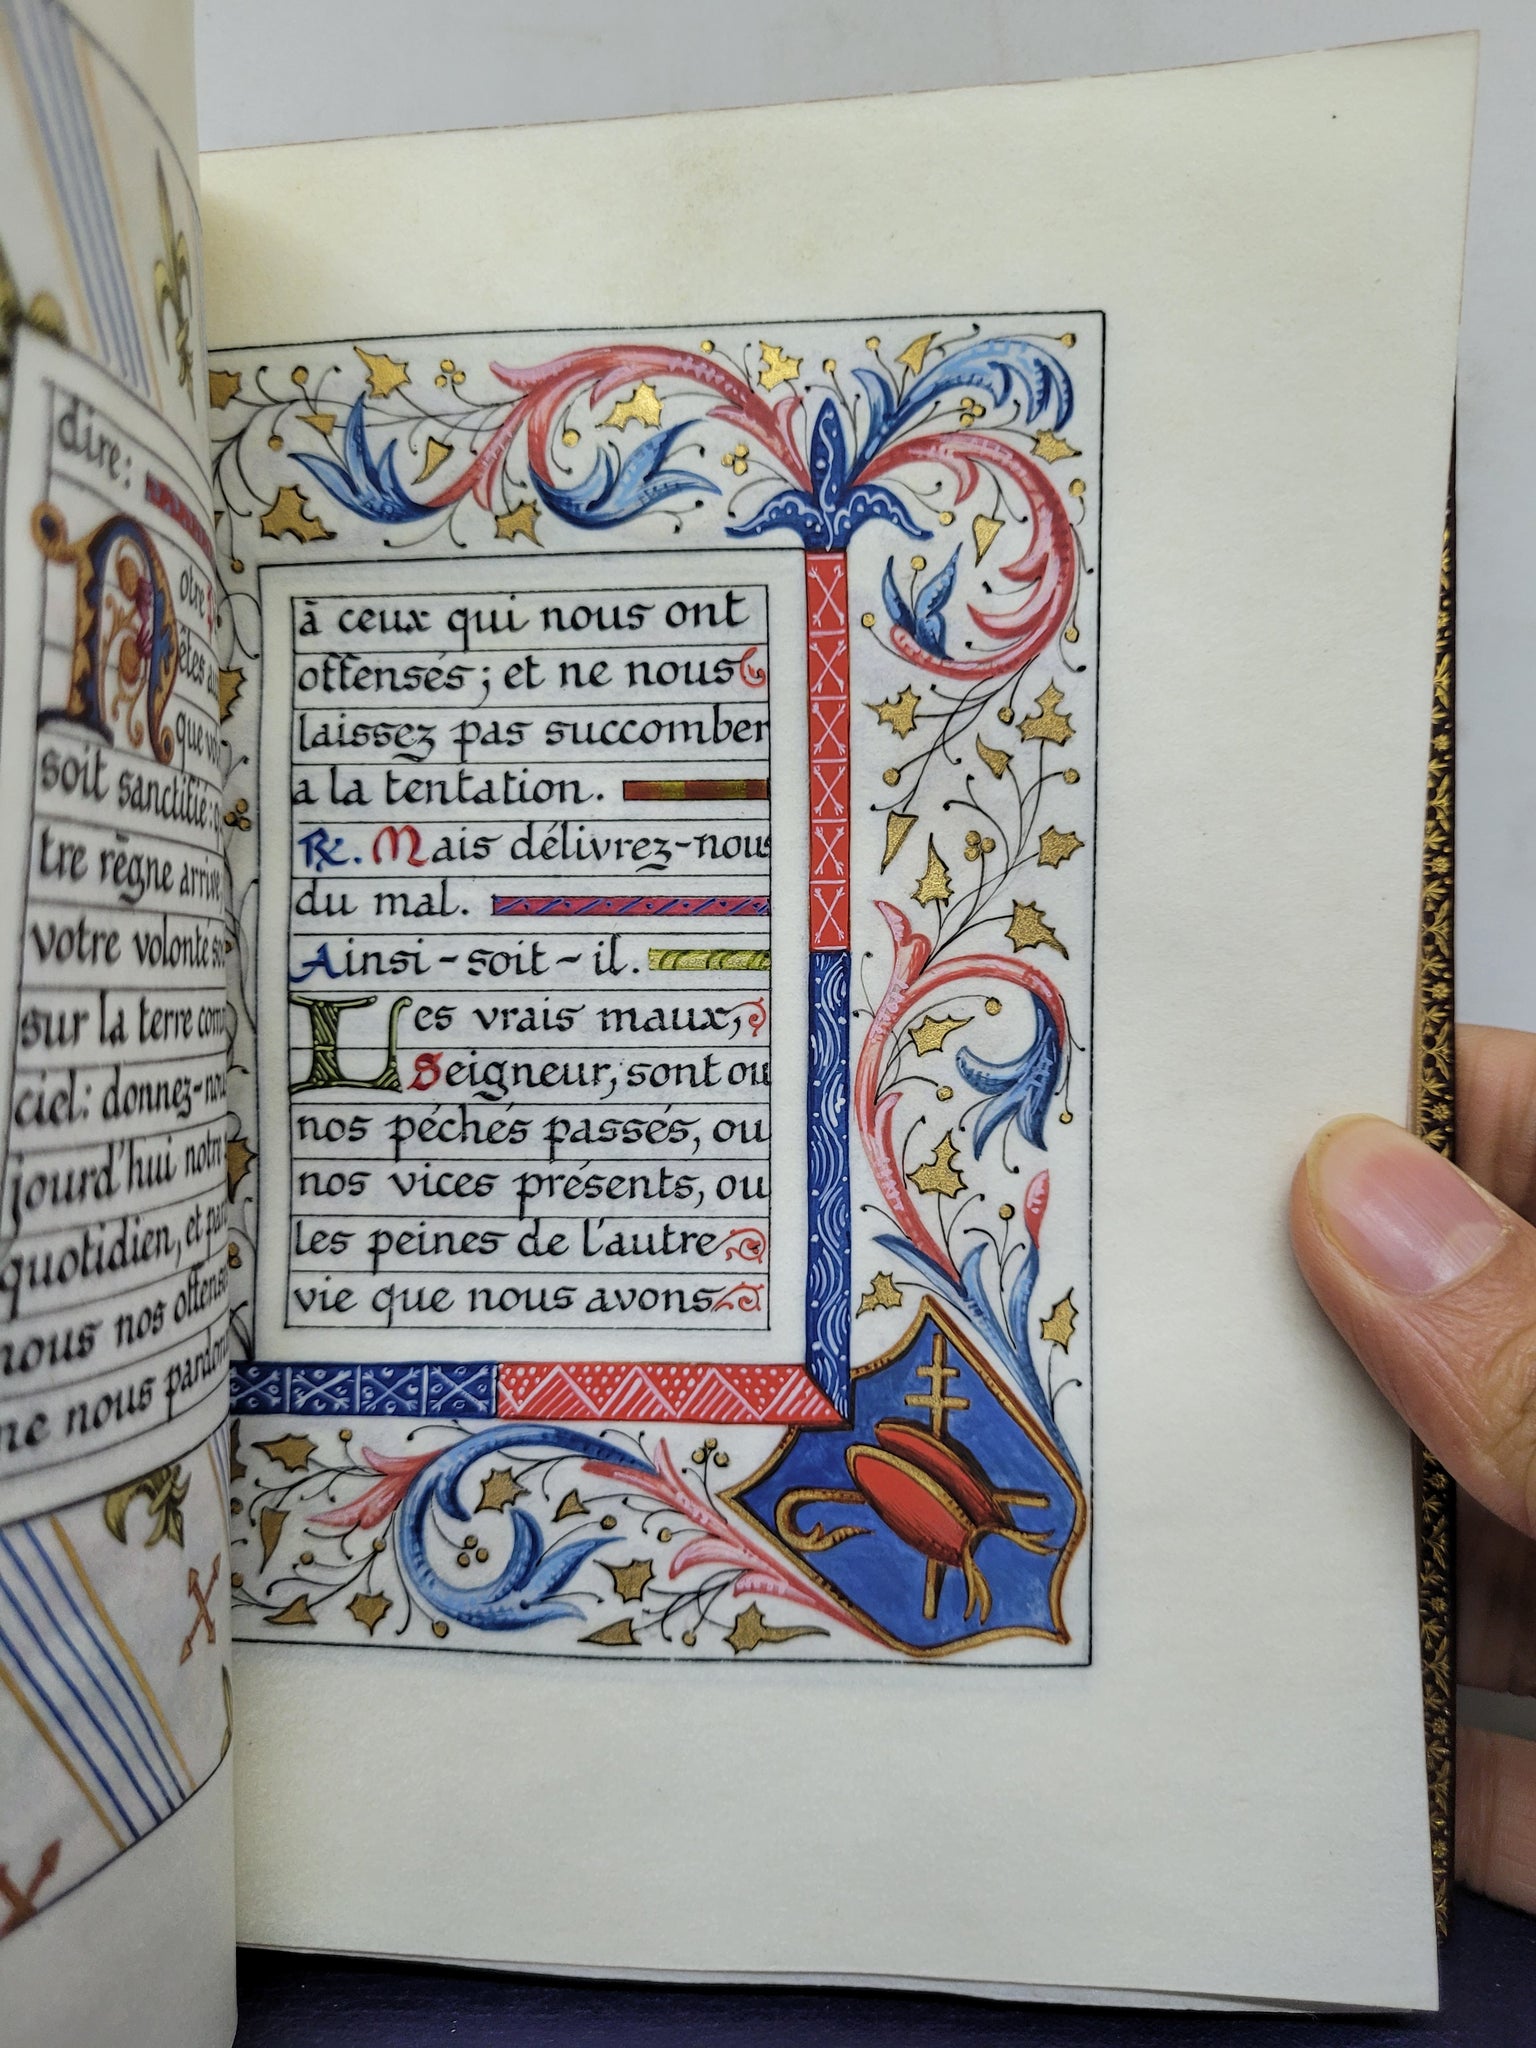 dire:
Notre
êtes
que
soit sanctifié:
tre règne arrive,
votre volonté
sur la terre
ciel: donnez-
jourd'hui
quotidien, et
nous nos
me nous
à ceux qui nous ont
offensés; et ne nous
laissez pas succomber
a la tentation.
℞. Mais délivrez-nous
du mal.
Ainsi-soit-il.
Les vrais maux,
Seigneur, sont ou
nos péchés passés, ou
nos vices présents, ou
les peines de l'autre
vie que nous avons